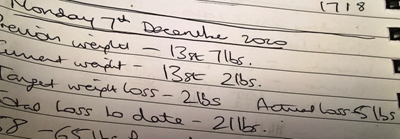 1718
Monday 7th December 2020
Previous weight - 13st 7lbs.
Current weight - 13st 2lbs.
Target weight loss - 2lbs Actual loss-5lbs
Total Loss to date - 21lbs.